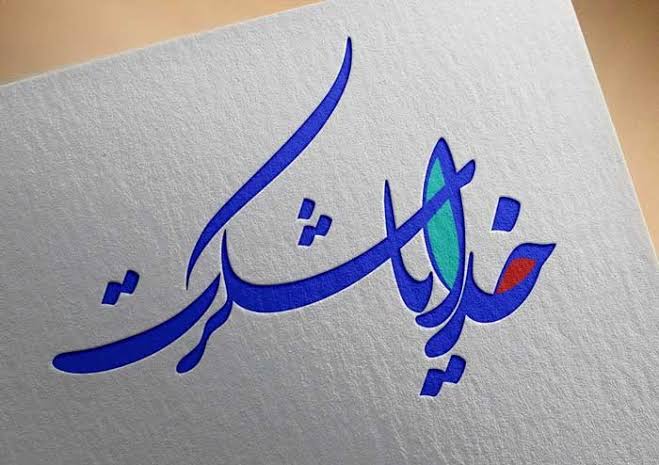 خدایا شکرت